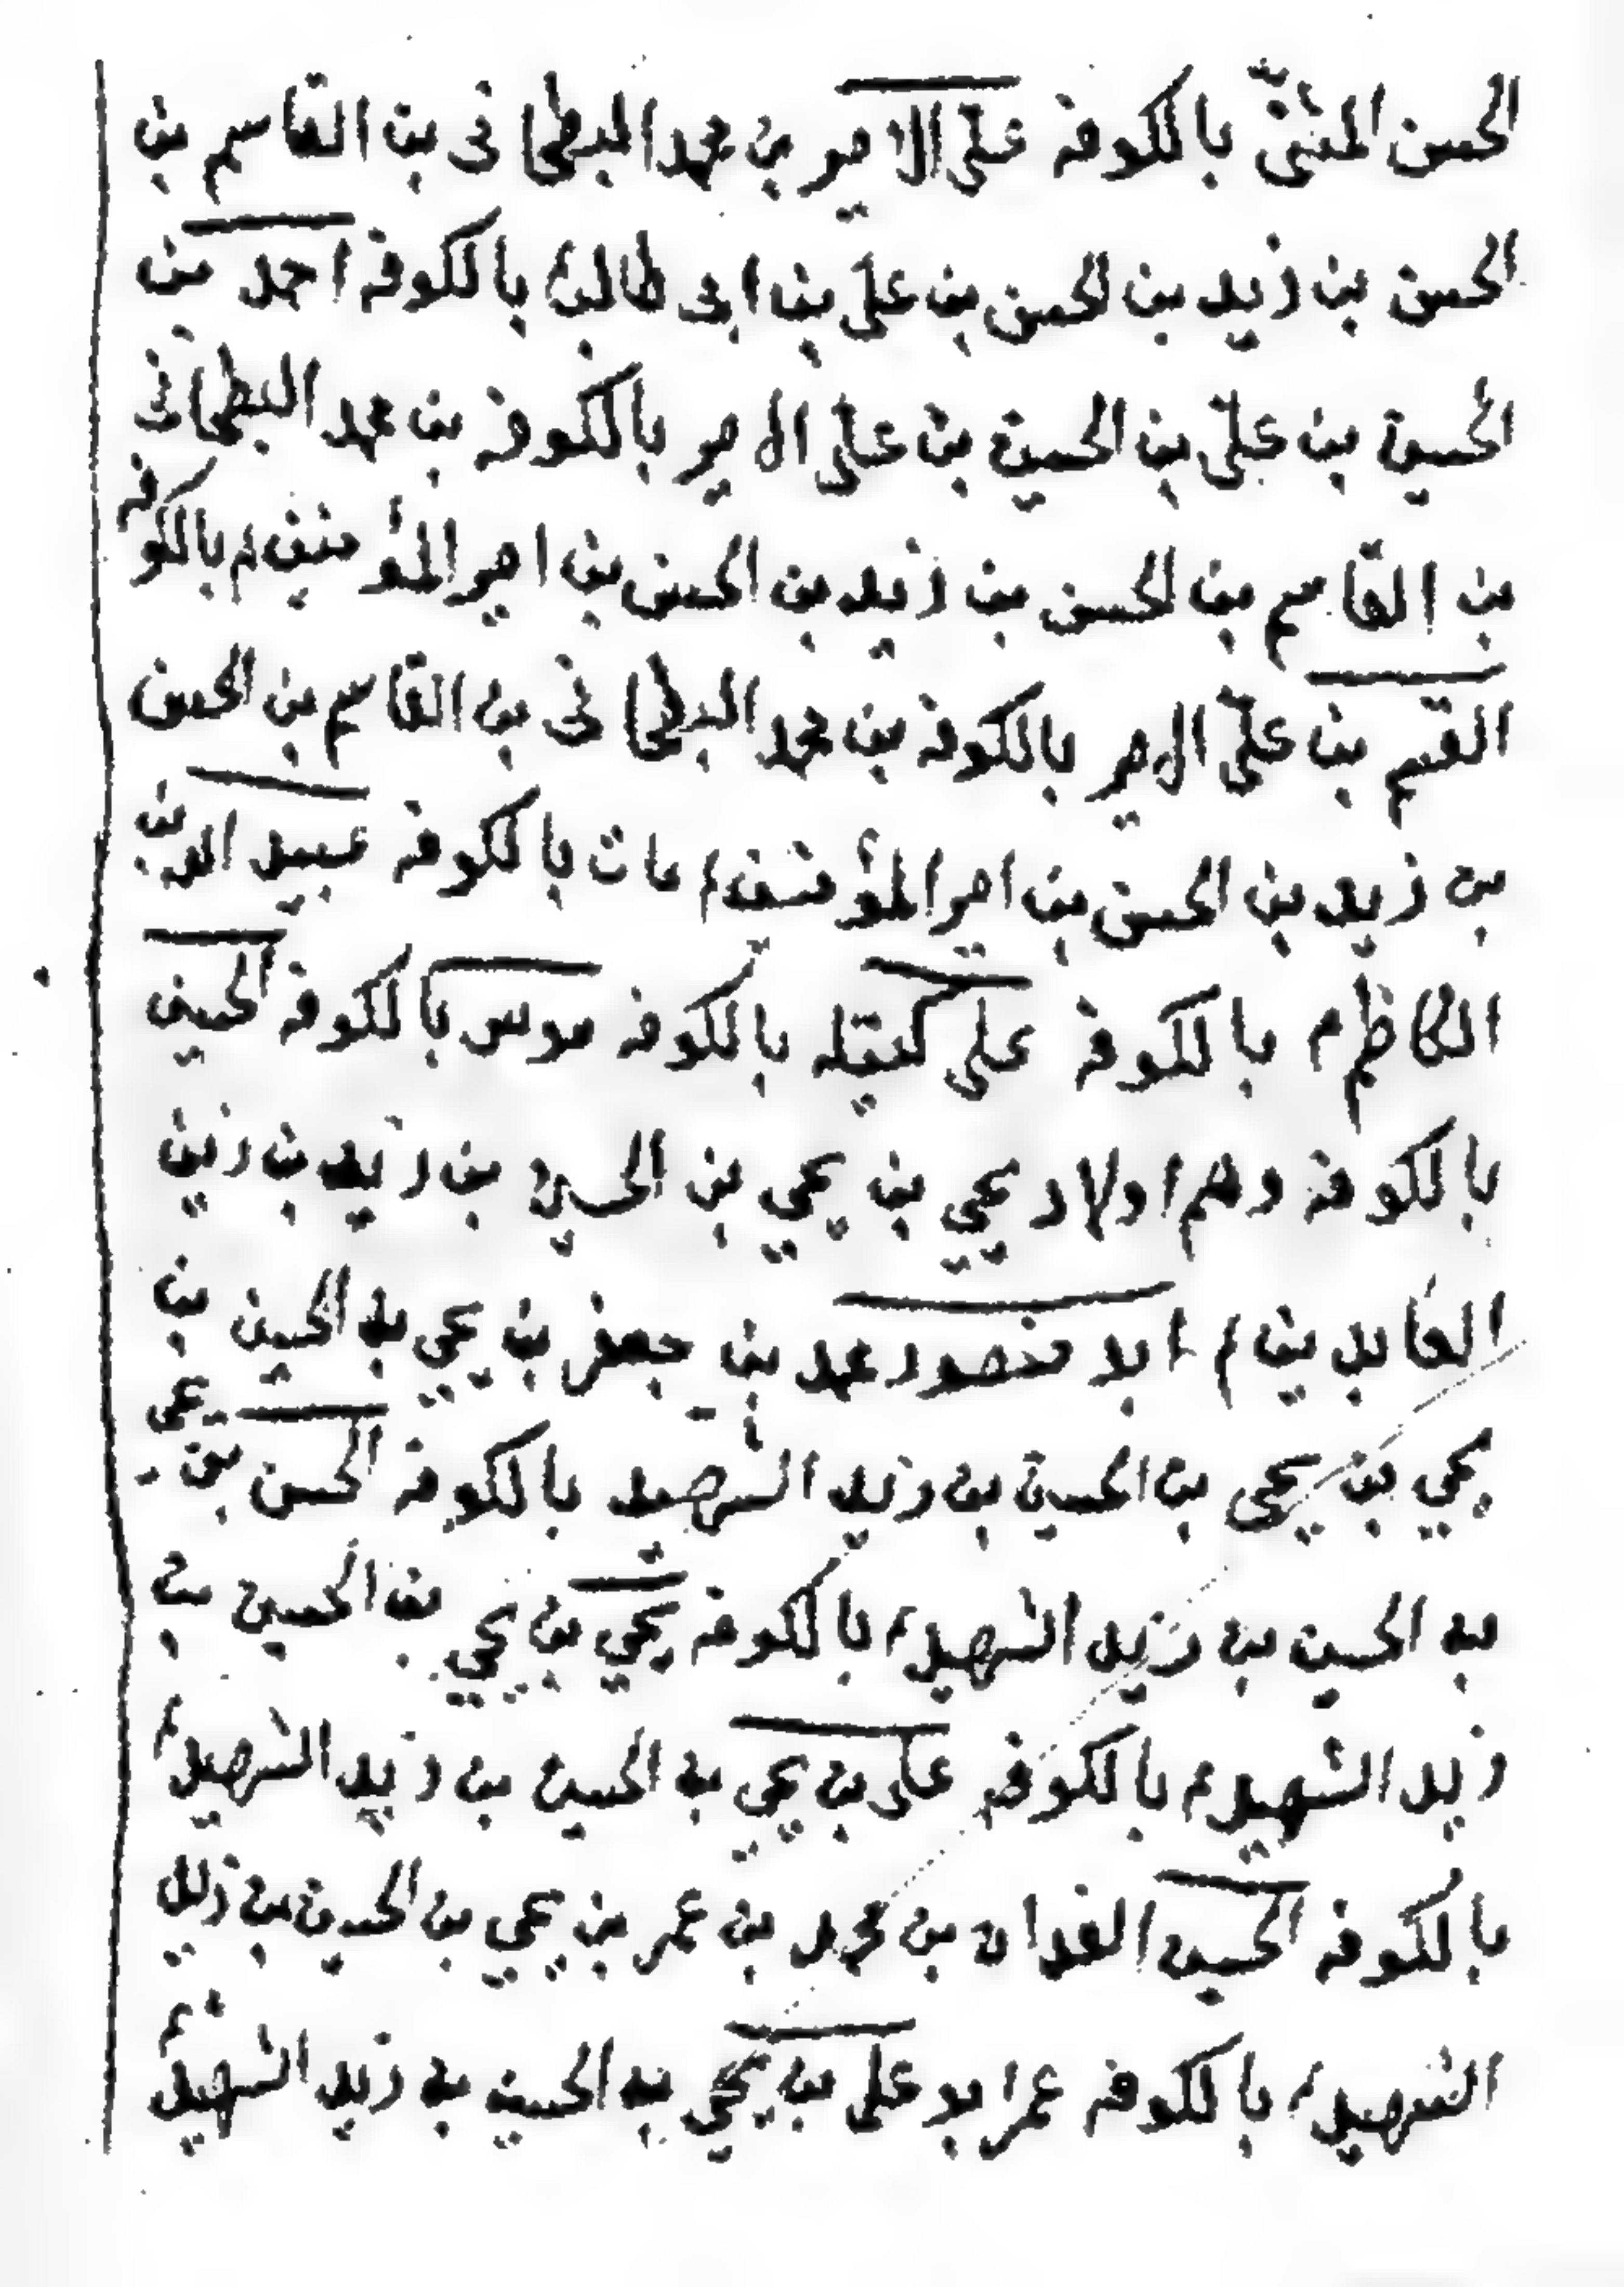 الحسن المثنىّ بالكوفه علىّ الامير بن محمد البطحانى بن القاسم بن
الحسن بن زيد بن الحسن بن على بن ابى طالب ع بالكوفه احمد بن
الحسين بن علىّ بن الحسين بن على الامير بالكوفه بن محمد البطحانى
بن القاسم بن الحسن بن زيد بن الحسن بن امير المؤمنين م بالكوفه
القسم بن علىّ الامير بالكوفه بن محمد البطحانى بن القاسم بن الحسن
بن زيد بن الحسن بن امير المؤمنين م مات بالكوفه عبيد الله بن
الكاظم م بالكوفه على كتيله بالكوفه موسى بالكوفه الحسين
بالكوفه وهم اولاد يحيي بن يحيي بن الحسين بن زيد بن زين
العابدين م ابو منصور محمد بن جعفر بن يحيي بن الحسين بن
يحيي بن يحيى بن الحسين بن زيد الشهيد بالكوفه الحسن بن يحيى
بن الحسين بن زيد الشهيد م بالكوفه يحيي بن يحيي بن الحسين بن
زيد الشهيد م بالكوفه على بن يحيي بن الحسين بن زيد الشهيد م
بالكوفه الحسين الفدان بن محمد بن عمر بن يحيي بن الحسين بن زيد
الشهيد م بالكوفه عمر ابو على بن يحيي بن الحسين بن زيد الشهيد م